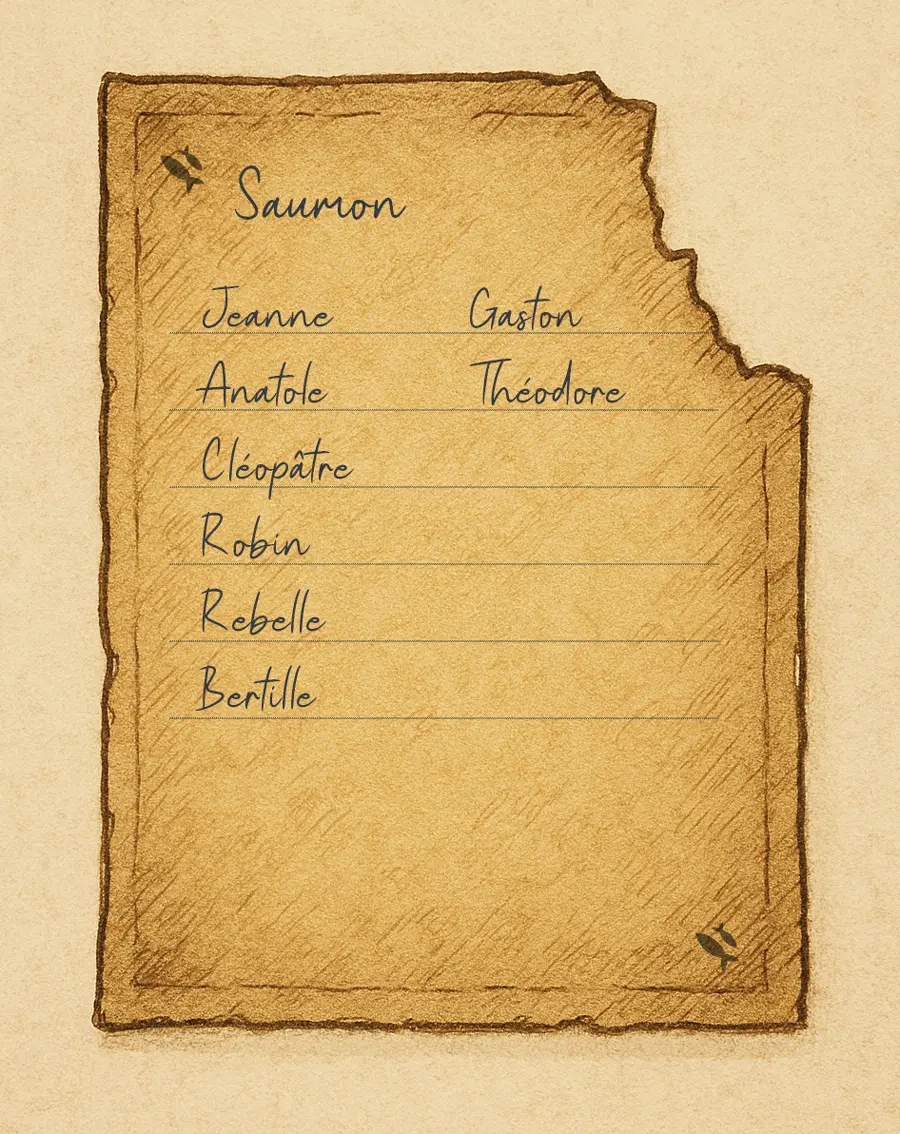 Saumon
Jeanne Gaston
Anatole Théodore
Cléopâtre
Robin
Rebelle
Bertille